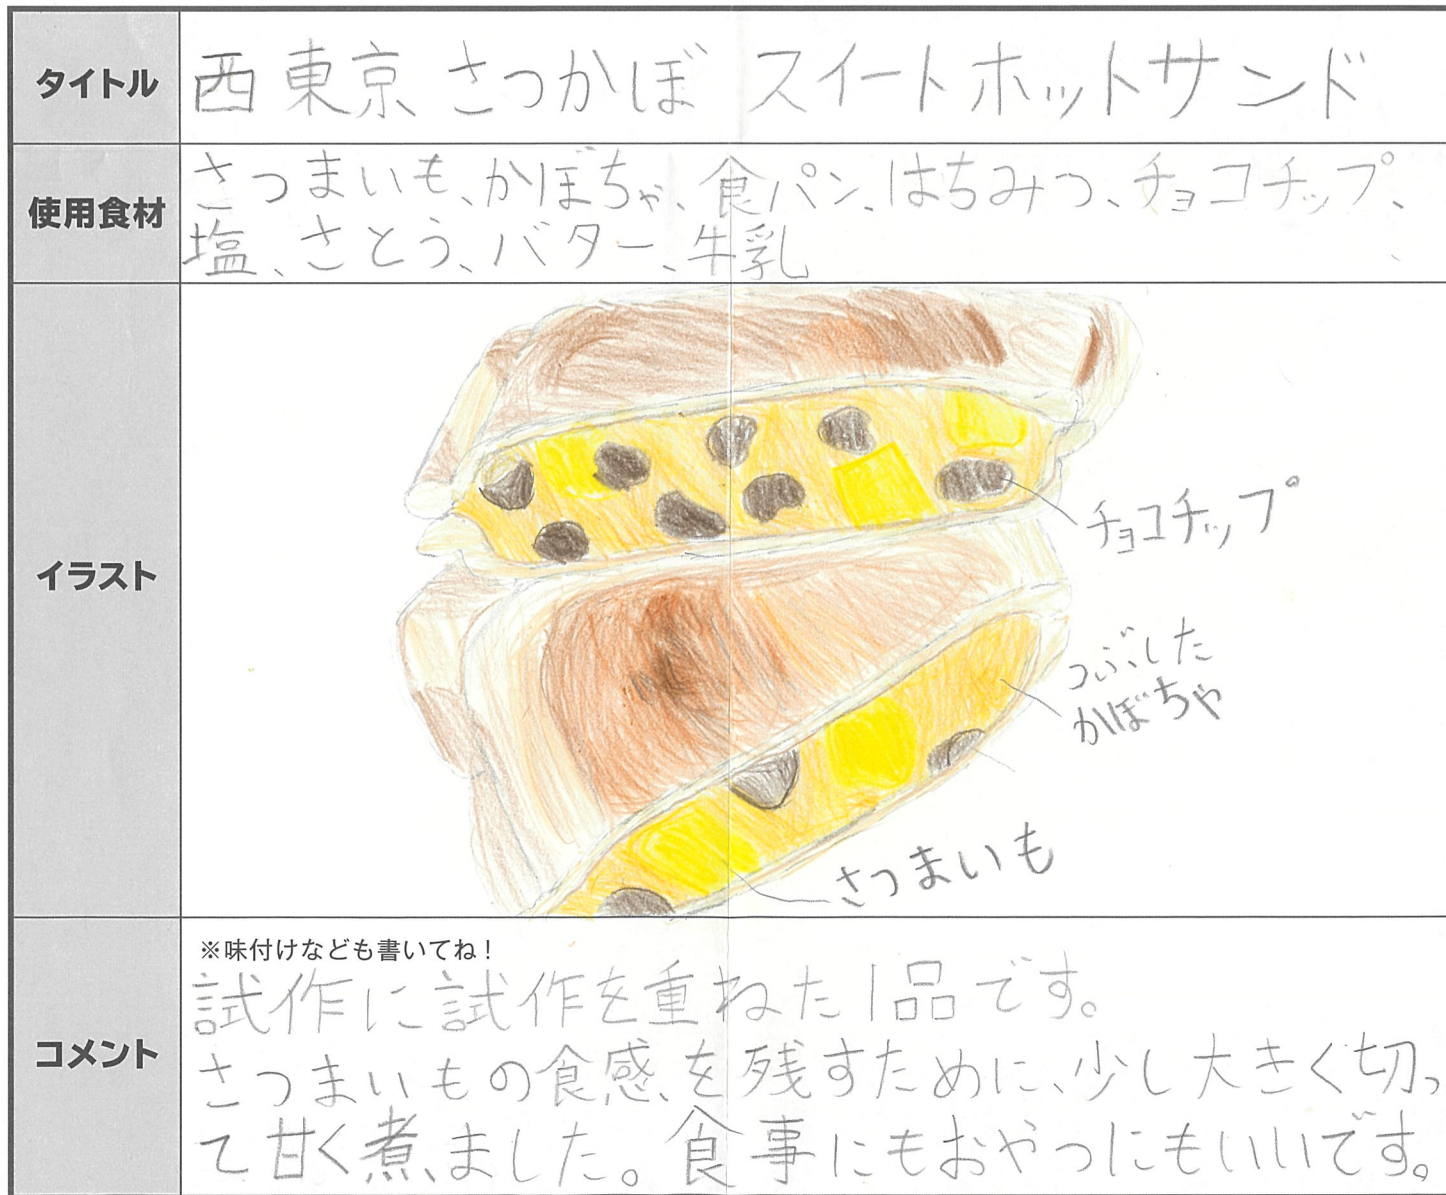 タイトル
西東京さつかぼ スイートホットサンド
使用食材
さつまいも、かぼちゃ、食パン、はちみつ、チョコチップ、
塩、さとう、バター、牛乳
イラスト
チョコチップ
つぶした
かぼちゃ
さつまいも
コメント
※味付けなども書いてね!
試作に試作を重ねた1品です。
さつまいもの食感を残すために、少し大きく切っ
て甘く煮ました。食事にもおやつにもいいです。